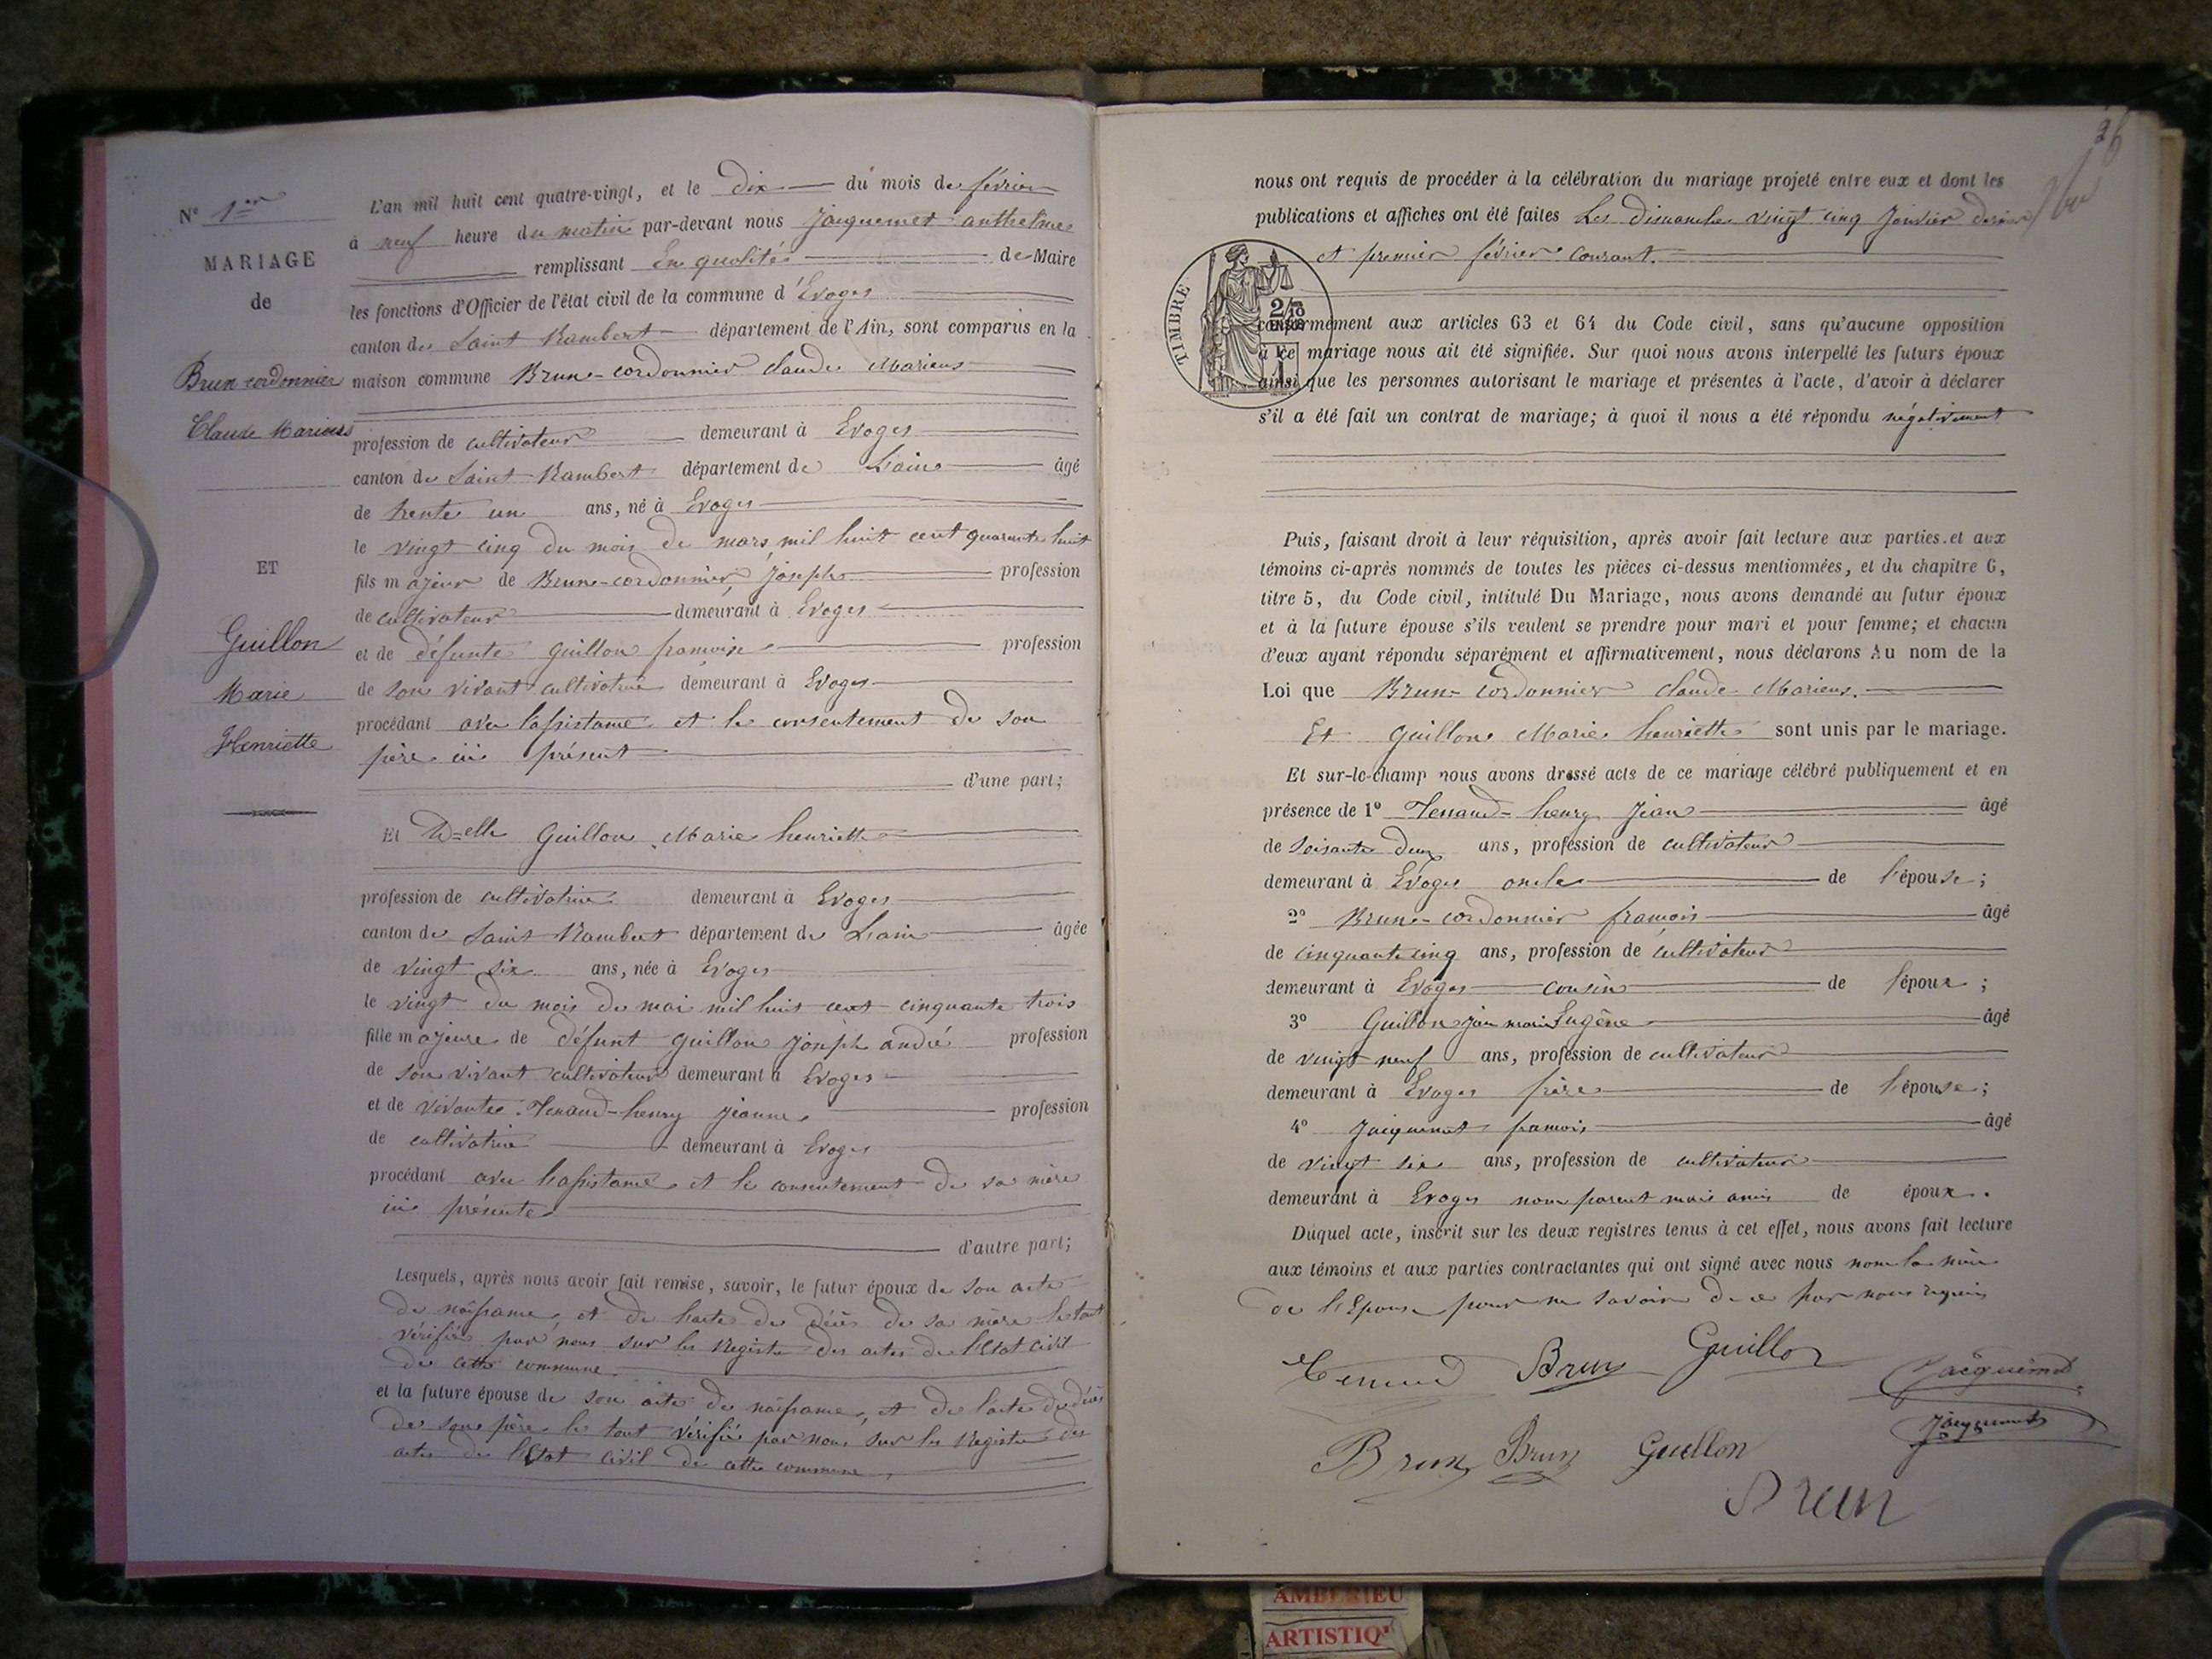 N° 1er
MARIAGE
de
Brun cordonnier
Claude Marieus
ET
Guillon
Marie
Henriette
L'an mil huit cent quatre-vingt, et le dix du mois de février
à neuf heure du matin par-devant nous Jacquemet anthelme
remplissant En qualités de Maire
les fonctions d'Officier de l'état civil de la commune d'Evoges
canton de Saint Rambert département de l'Ain, sont comparus en la
maison commune Brun-cordonnier claude Marieus
profession de cultivateur demeurant à Evoges
canton de Saint Rambert département de L'ain âgé
de trente un ans, né à Evoges
le vingt cinq du mois de mars mil huit cent quarante huit
fils majeur de Brun-cordonnier, Joseph profession
de cultivateur demeurant à Evoges
et de défunte guillon francoise profession
de son vivant cultivatrice demeurant à Evoges
procédant avec lassistance et le consentement de son
père ici présent
d'une part;
Et D=elle Guillon Marie henriette
profession de cultivatrice demeurant à Evoges
canton de Saint Rambert département de L'ain âgée
de vingt six ans, née à Evoges
le vingt du mois de mai mil huit cent cinquante trois
fille majeure de défunt guillon Joseph andré profession
de son vivant cultivateur demeurant à Evoges
et de vivante Tenand-henry Jeanne profession
de cultivatrice demeurant à Evoges
procédant avec lassistance et le consentement de sa mère
ici présente
d'autre part;
Lesquels, après nous avoir fait remise, savoir, le futur époux de son acte
de naissance, et de l'acte de décès de sa mère le tout
vérifié par nous sur les registre des actes de l'Etat civil
de cette commune
et la future épouse de son acte de naissance, et de l'acte de décès
de son père le tout vérifié par nous sur les registre des
actes de l'Etat civil de cette commune
26
nous ont requis de procéder à la célébration du mariage projeté entre eux et dont les
publications et affiches ont été faites Les dimanches vingt cinq Janvier dernier
et premier février courant.
TIMBRE
2/10
EN SUS
conformément aux articles 63 et 64 du Code civil, sans qu'aucune opposition
à ce mariage nous ait été signifiée. Sur quoi nous avons interpellé les futurs époux
ainsi que les personnes autorisant le mariage et présentes à l'acte, d'avoir à déclarer
s'il a été fait un contrat de mariage; à quoi il nous a été répondu négativement
Puis, faisant droit à leur réquisition, après avoir fait lecture aux parties et aux
témoins ci-après nommés de toutes les pièces ci-dessus mentionnées, et du chapitre 6,
titre 5, du Code civil, intitulé Du Mariage, nous avons demandé au futur époux
et à la future épouse s'ils veulent se prendre pour mari et pour femme; et chacun
d'eux ayant répondu séparément et affirmativement, nous déclarons Au nom de la
Loi que Brun-cordonnier claude Marieus.
Et Guillon Marie henriette sont unis par le mariage.
Et sur-le-champ nous avons dressé acte de ce mariage célébré publiquement et en
présence de 1° Tenand-henry Jean âgé
de soisante deux ans, profession de cultivateur
demeurant à Evoges oncle de l'épouse;
2° Brun-cordonnier francois âgé
de cinquante cinq ans, profession de cultivateur
demeurant à Evoges cousin de l'époux;
3° Guillon Jean marie Eugène âgé
de vingt neuf ans, profession de cultivateur
demeurant à Evoges frère de l'épouse;
4° Jacquemet francois âgé
de vingt six ans, profession de cultivateur
demeurant à Evoges non parent mais amis de époux.
Duquel acte, inscrit sur les deux registres tenus à cet effet, nous avons fait lecture
aux témoins et aux parties contractantes qui ont signé avec nous non la mère
de l'Epouse pour ne savoir de ce par nous requis
Tenand Brun Guillon Jacquemet
Jacquemet
Brun Brun Guillon
Brun
AMBERIEU
ARTISTIQ